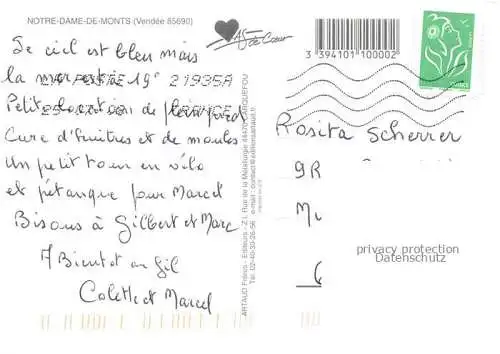 NOTRE-DAME-DE-MONTS (Vendée 85690)
As de Coeur
3 394101 100002
Le ciel est bleu mais
la mer est à 19°
LA POSTE 21935A
Petite location de plein pied
FRANCE
Cure d'huîtres et de moules
Un petit tour en vélo
et pétanque pour Marcel
Bisous à Gilbert et Marc
A Bientôt on Gil
Colette et Marcel
ARTAUD Frères - Editeurs - Z.I. Rue de la Métallurgie 44470 CARQUEFOU
Tél. 02-40-30-26-56 e-mail: contact@editionsartaud.fr
Rosita Scherrer
9R
M
6
privacy protection
Datenschutz